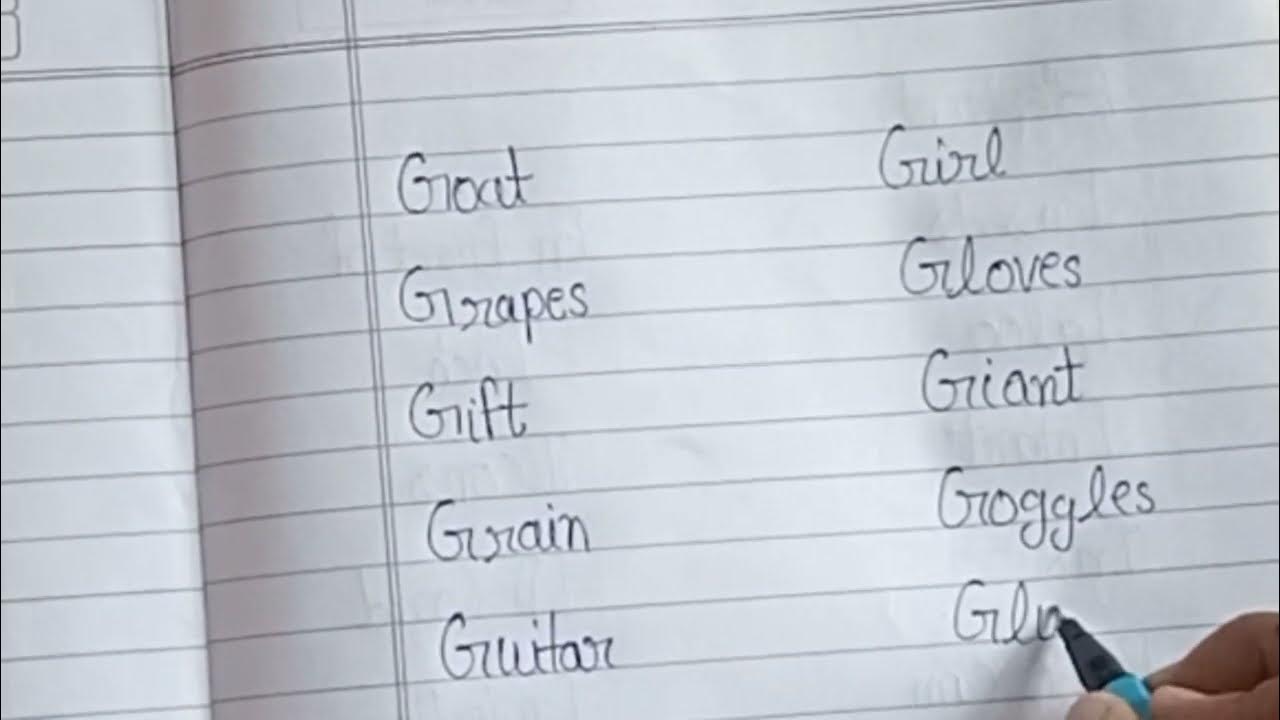 Goat Girl
Grapes Gloves
Gift Giant
Grain Goggles
Guitar